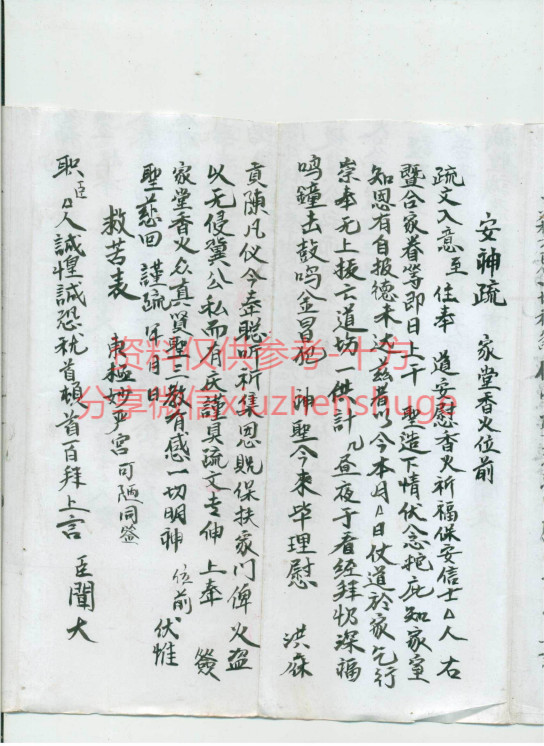 安神疏 家堂香火位前
疏文入意至 住奉 道安慰香火祈福保安信士厶人右
暨合家眷等即日上干 聖造下情伏念祀庇知家室
知恩有自报德未 兹者今本月厶日仗道於家乞行
崇奉无上 道切一供計几昼夜于看经拜忏深福
鸣鐘击鼓鸣金冒 神聖今来毕理慰 洪庥
贡陳凡仪今奉聪听祈集恩贶保扶家门俾火盗
以无侵冀公私而有庆謹具疏文专伸 上奉 簽
家堂香火众真賢聖三教有感一切明神 位前 伏惟
聖慈回 謹疏 年月日
救苦表 東極妙严宫可陋同簽
职臣厶人誠惶誠恐稽首頓首百拜上言 臣聞大
资料仅供参考-十方
分享微信xiuzhenshuge